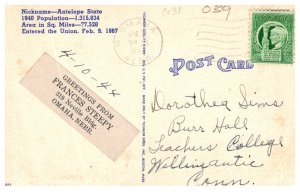 Nickname—Antelope State
1940 Population—1,315,834
Area in Sq. Miles—77,520
Entered the Union, Feb. 9, 1867
059
4-10-44
POST CARD
GREETINGS FROM
FRANCES STEEPY
Neville Bldg.
OMAHA, NEBR.
Dorothea Sims
Burr Hall
Teachers College
Willimantic
Conn.